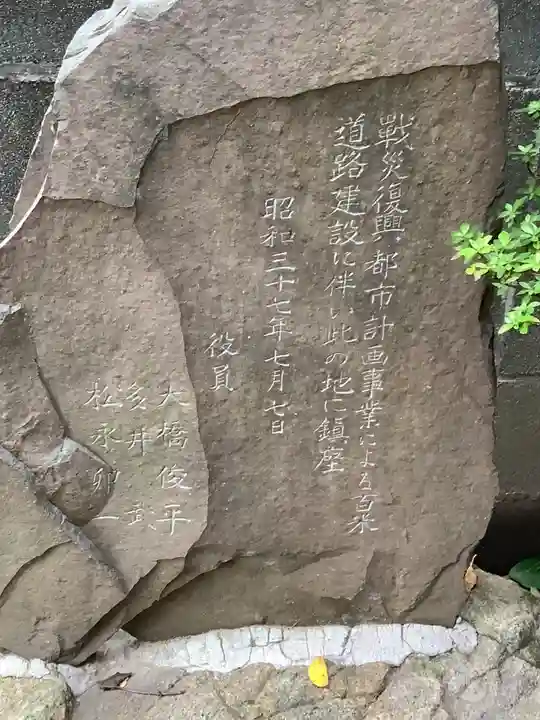 戦災復興都市計画事業による百米
道路建設に伴い此の地に鎮座
昭和三十七年七月七日
役員
大橋俊平
多井武
松永卯一